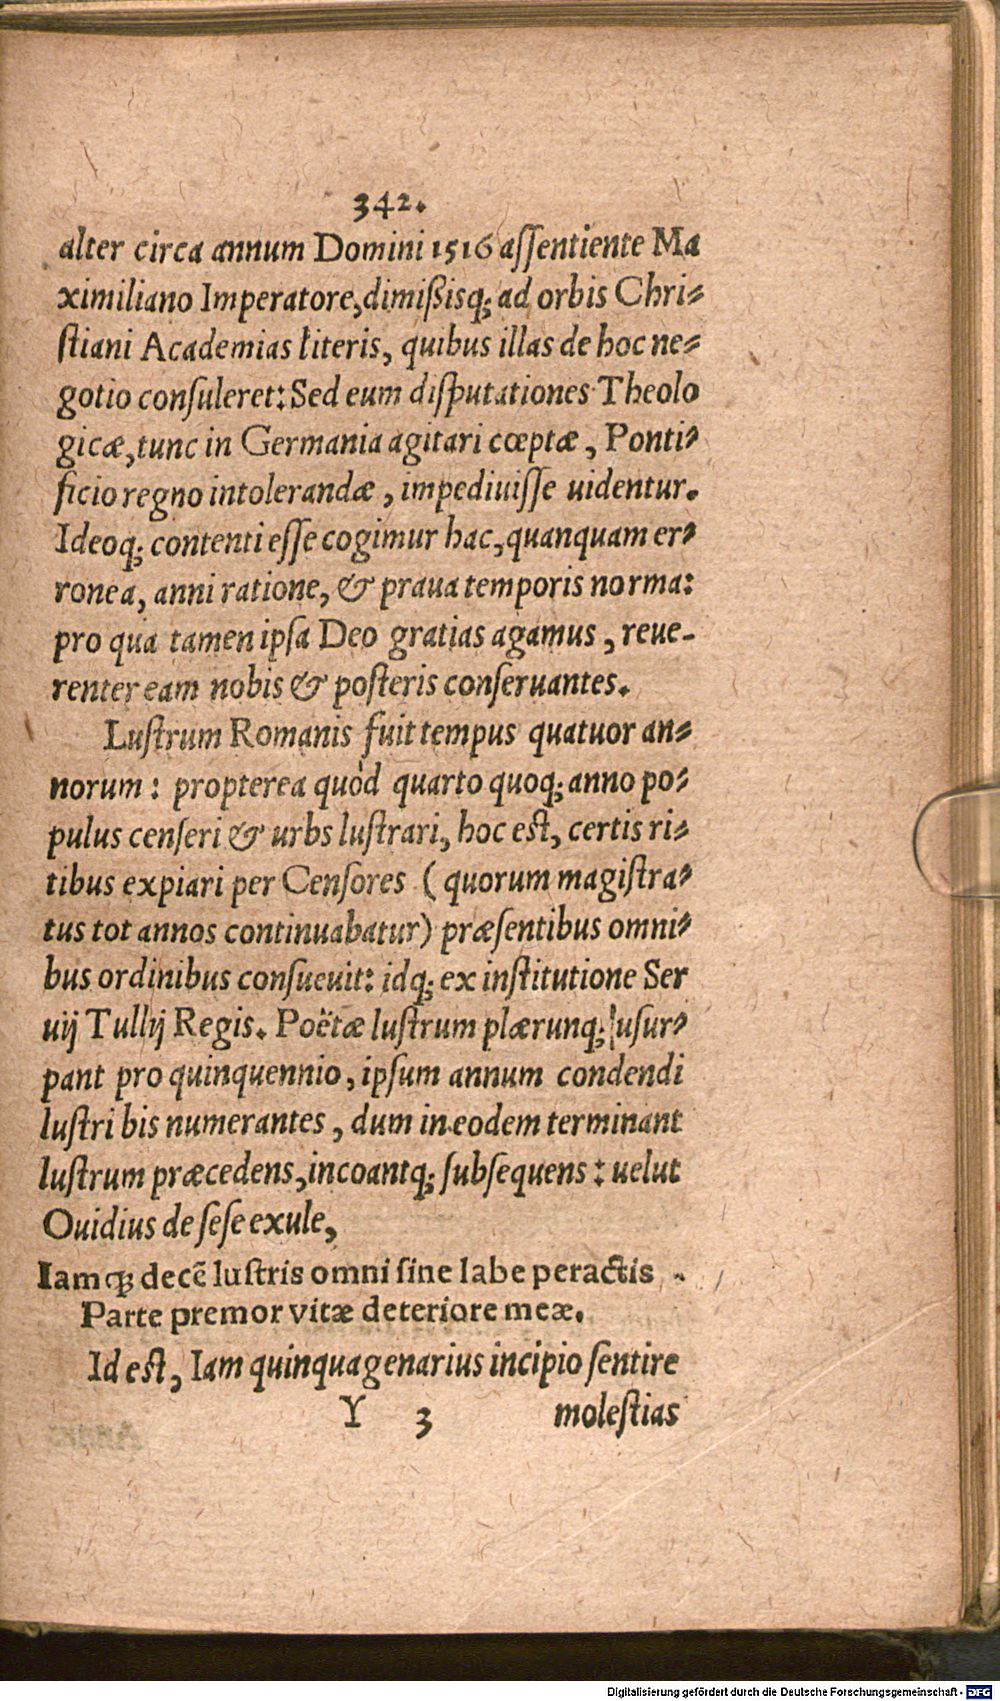 342.
alter circa annum Domini 1516 aſſentiente Ma
ximiliano Imperatore, dimißisq; ad orbis Chri-
ſtiani Academias literis, quibus illas de hoc ne-
gotio conſuleret: Sed eum diſputationes Theolo
gicæ, tunc in Germania agitari cœptæ, Ponti-
ficio regno intolerandæ, impediuiſſe uidentur.
Ideoq; contenti eſſe cogimur hac, quanquam er-
ronea, anni ratione, & praua temporis norma:
pro qua tamen ipſa Deo gratias agamus, reue-
renter eam nobis & poſteris conſeruantes.
Luſtrum Romanis fuit tempus quatuor an-
norum: propterea quòd quarto quoq; anno po-
pulus cenſeri & urbs luſtrari, hoc eſt, certis ri-
tibus expiari per Cenſores (quorum magiſtra-
tus tot annos continuabatur) præſentibus omni-
bus ordinibus conſueuit: idq; ex inſtitutione Ser
uij Tullij Regis. Poëtæ luſtrum plærunq; uſur-
pant pro quinquennio, ipſum annum condendi
luſtri bis numerantes, dum in eodem terminant
luſtrum præcedens, incoantq; ſubſequens: uelut
Ouidius de ſeſe exule,
Iamq; decẽ luſtris omni ſine labe peractis
Parte premor vitæ deteriore meæ.
Id eſt, Iam quinquagenarius incipio ſentire
Y 3 moleſtias
Digitalisierung gefördert durch die Deutsche Forschungsgemeinschaft - DFG